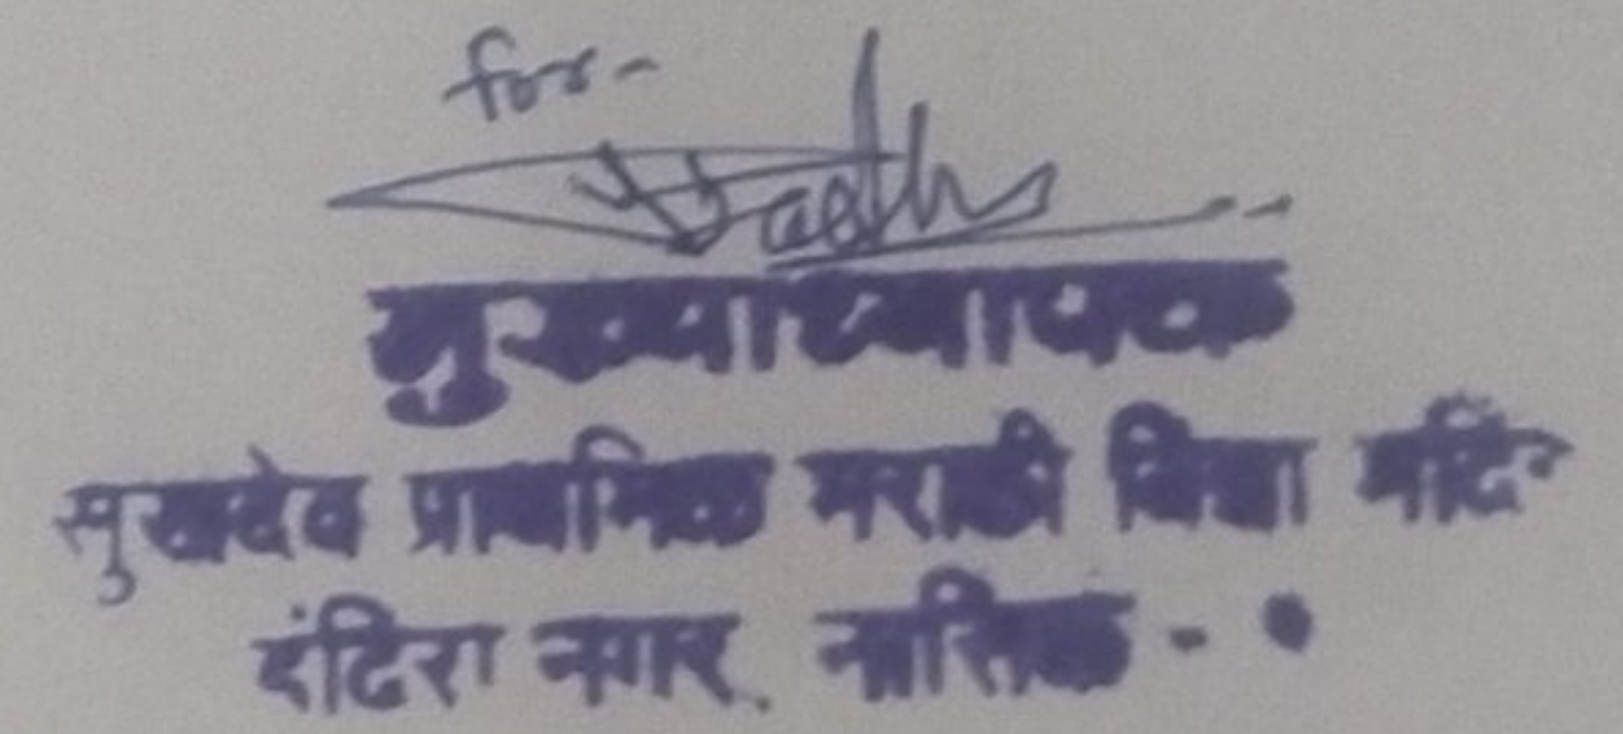 for-
मुख्याध्यापक
सुखदेव प्राथमिक मराठी विद्या मंदिर
इंदिरा नगर, नासिक -